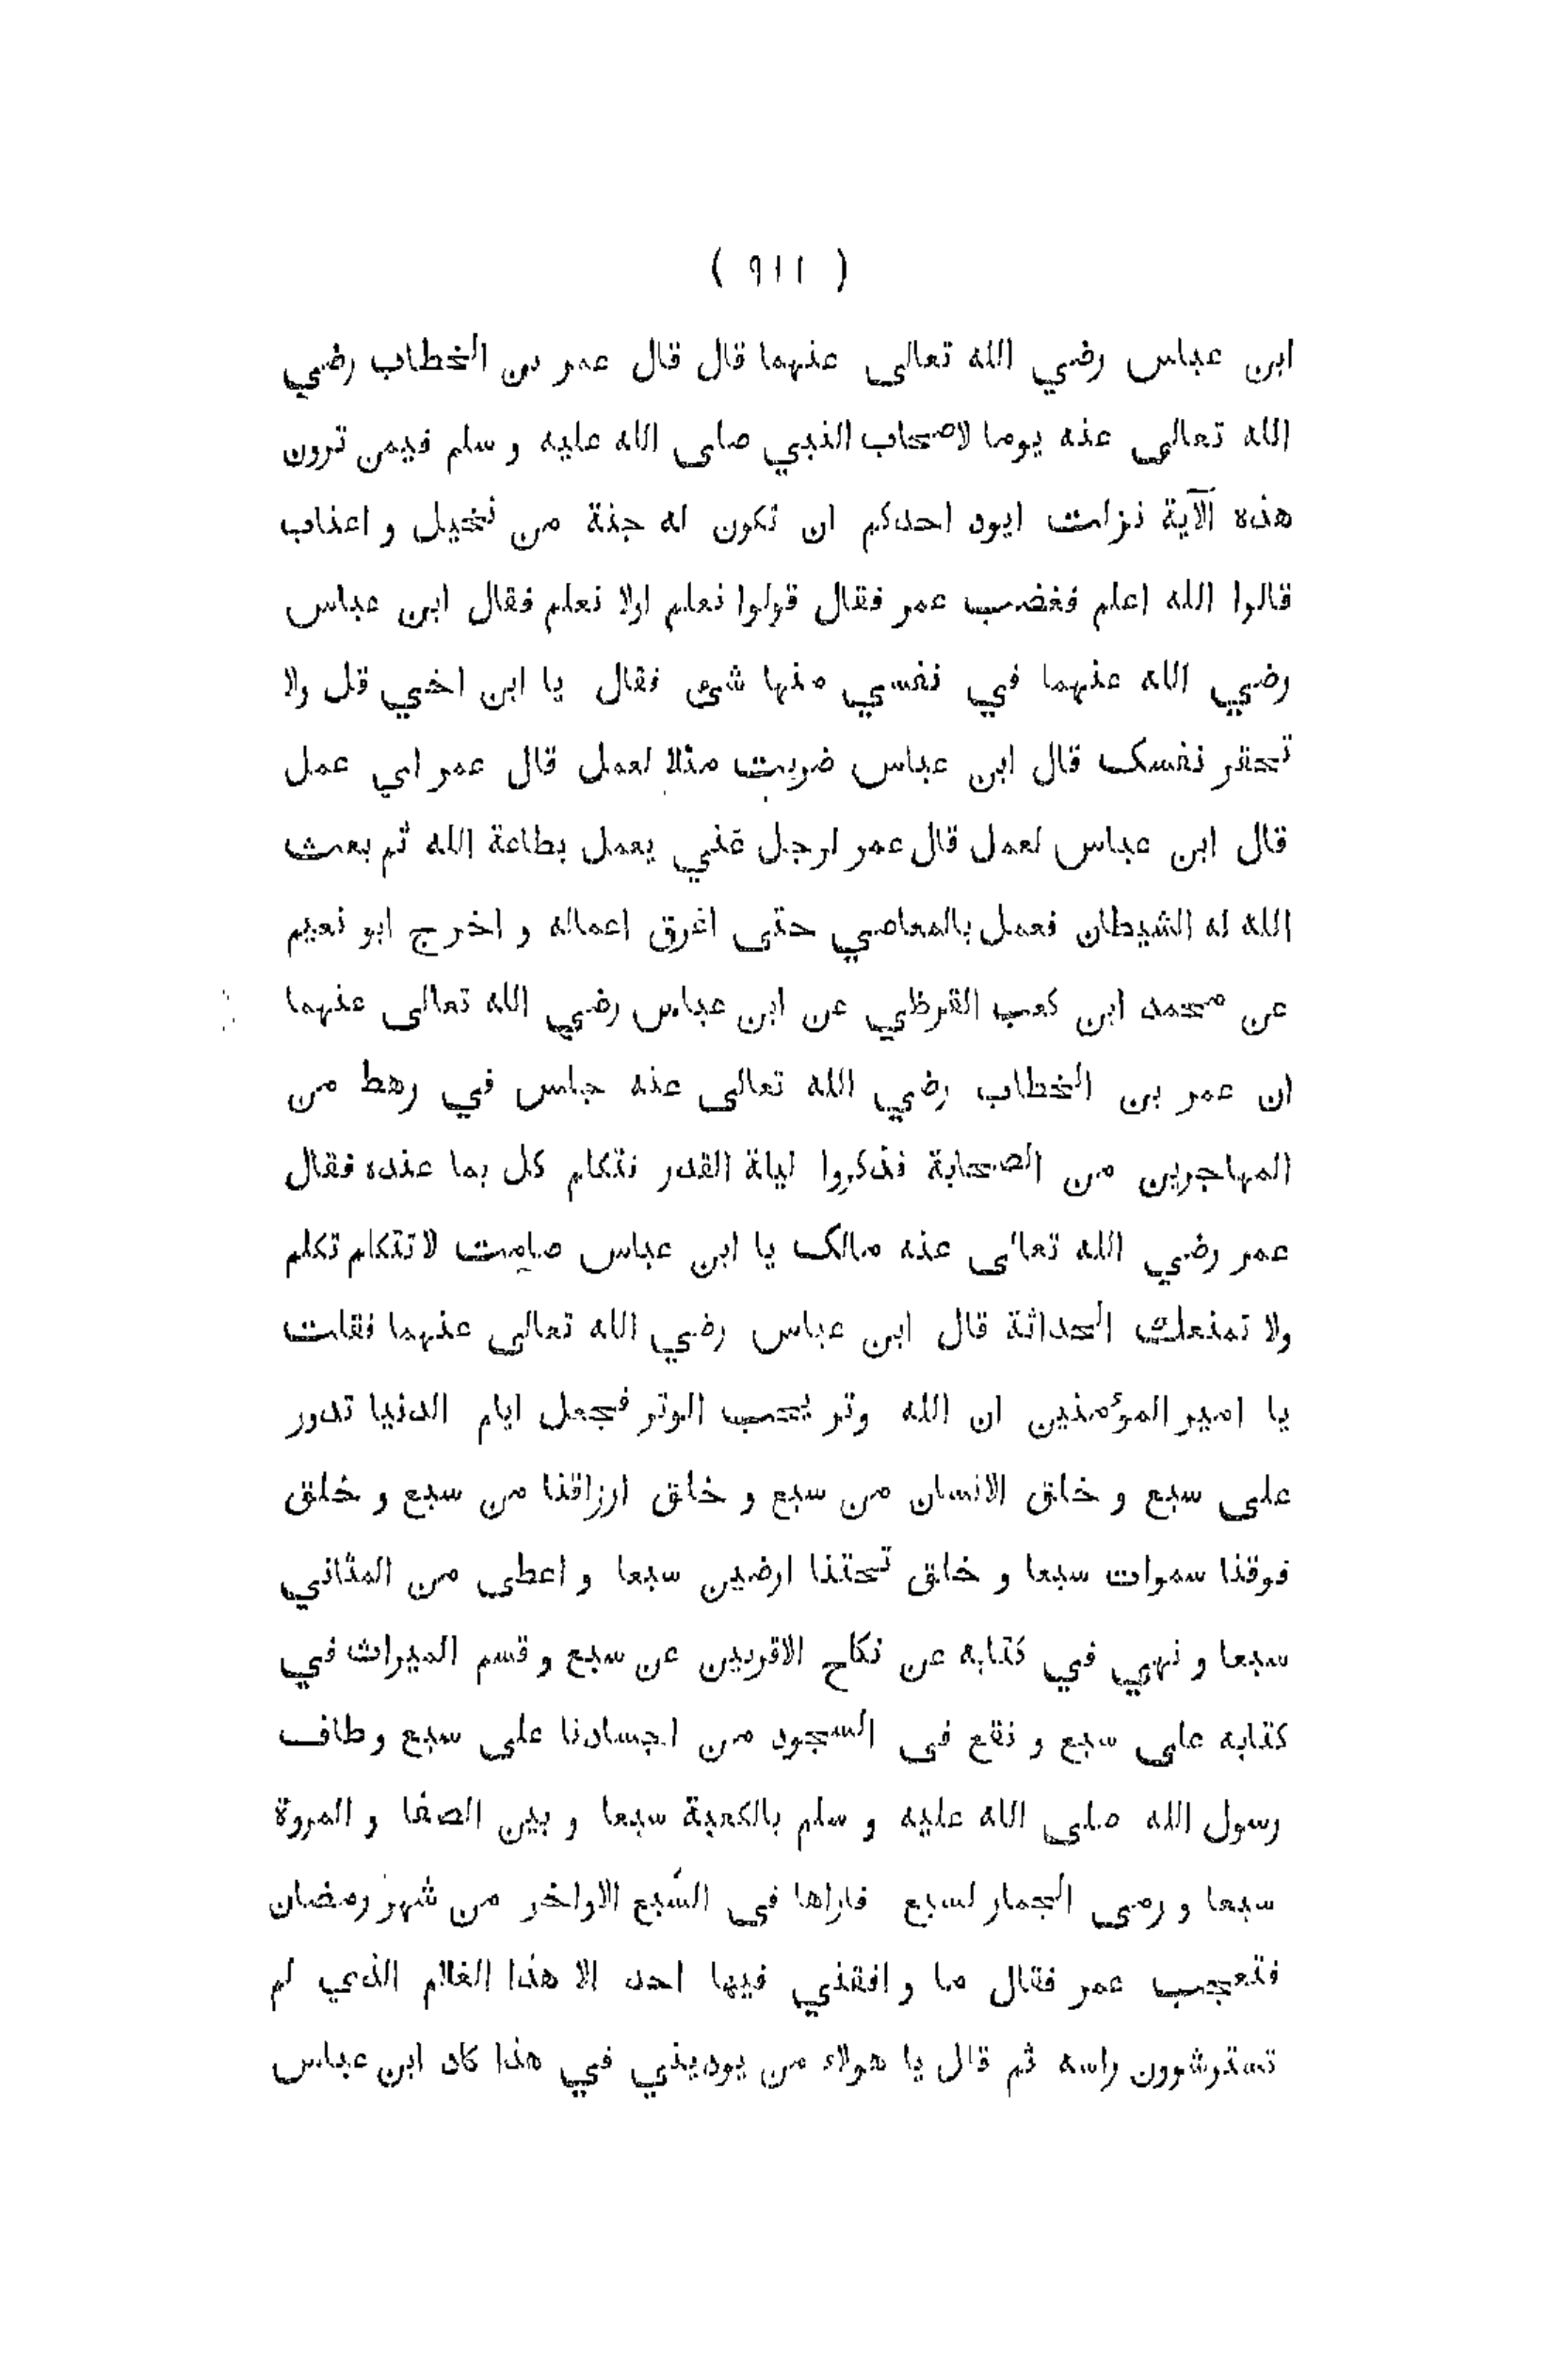 ( ٩١١ )
ابن عباس رضي الله تعالى عنهما قال قال عمر بن الخطاب رضي
الله تعالى عنه يوما لاصحاب النبي صلى الله عليه و سلم فيمن ترون
هذه الآية نزلت ايود احدكم ان تكون له جنة من نخيل و اعناب
قالوا الله اعلم فغضب عمر فقال قولوا نعلم اولا نعلم فقال ابن عباس
رضي الله عنهما في نفسي منها شئ فقال يا ابن اخي قل ولا
تحقر نفسك قال ابن عباس ضربت مثلا لعمل قال عمر اي عمل
قال ابن عباس لعمل قال عمر لرجل غني يعمل بطاعة الله ثم بعث
الله له الشيطان فعمل بالمعاصي حتى اغرق اعماله و اخرج ابو نعيم
عن محمد ابن كعب القرظي عن ابن عباس رضي الله تعالى عنهما
ان عمر بن الخطاب رضي الله تعالى عنه جلس في رهط من
المهاجرين من الصحابة فذكروا ليلة القدر فتكلم كل بما عنده فقال
عمر رضي الله تعالى عنه مالك يا ابن عباس صامت لا تتكلم تكلم
ولا تمنعك الحداثة قال ابن عباس رضي الله تعالى عنهما فقلت
يا امير المؤمنين ان الله وتر يحب الوتر فجعل ايام الدنيا تدور
على سبع و خلق الانسان من سبع و خلق ارزاقنا من سبع و خلق
فوقنا سموات سبعا و خلق تحتنا ارضين سبعا و اعطى من المثاني
سبعا و نهي في كتابه عن نكاح الاقربين عن سبع و قسم الميراث في
كتابه على سبع و نقع فى السجود من اجسادنا على سبع و طاف
رسول الله صلى الله عليه و سلم بالكعبة سبعا و بين الصفا و المروة
سبعا و رمى الجمار لسبع فاراها فى السبع الاواخر من شهر رمضان
فتعجب عمر فقال ما وافقني فيها احد الا هذا الغلام الذي لم
تستوشوون راسه ثم قال يا هولاء من يوديني في هذا كاد ابن عباس